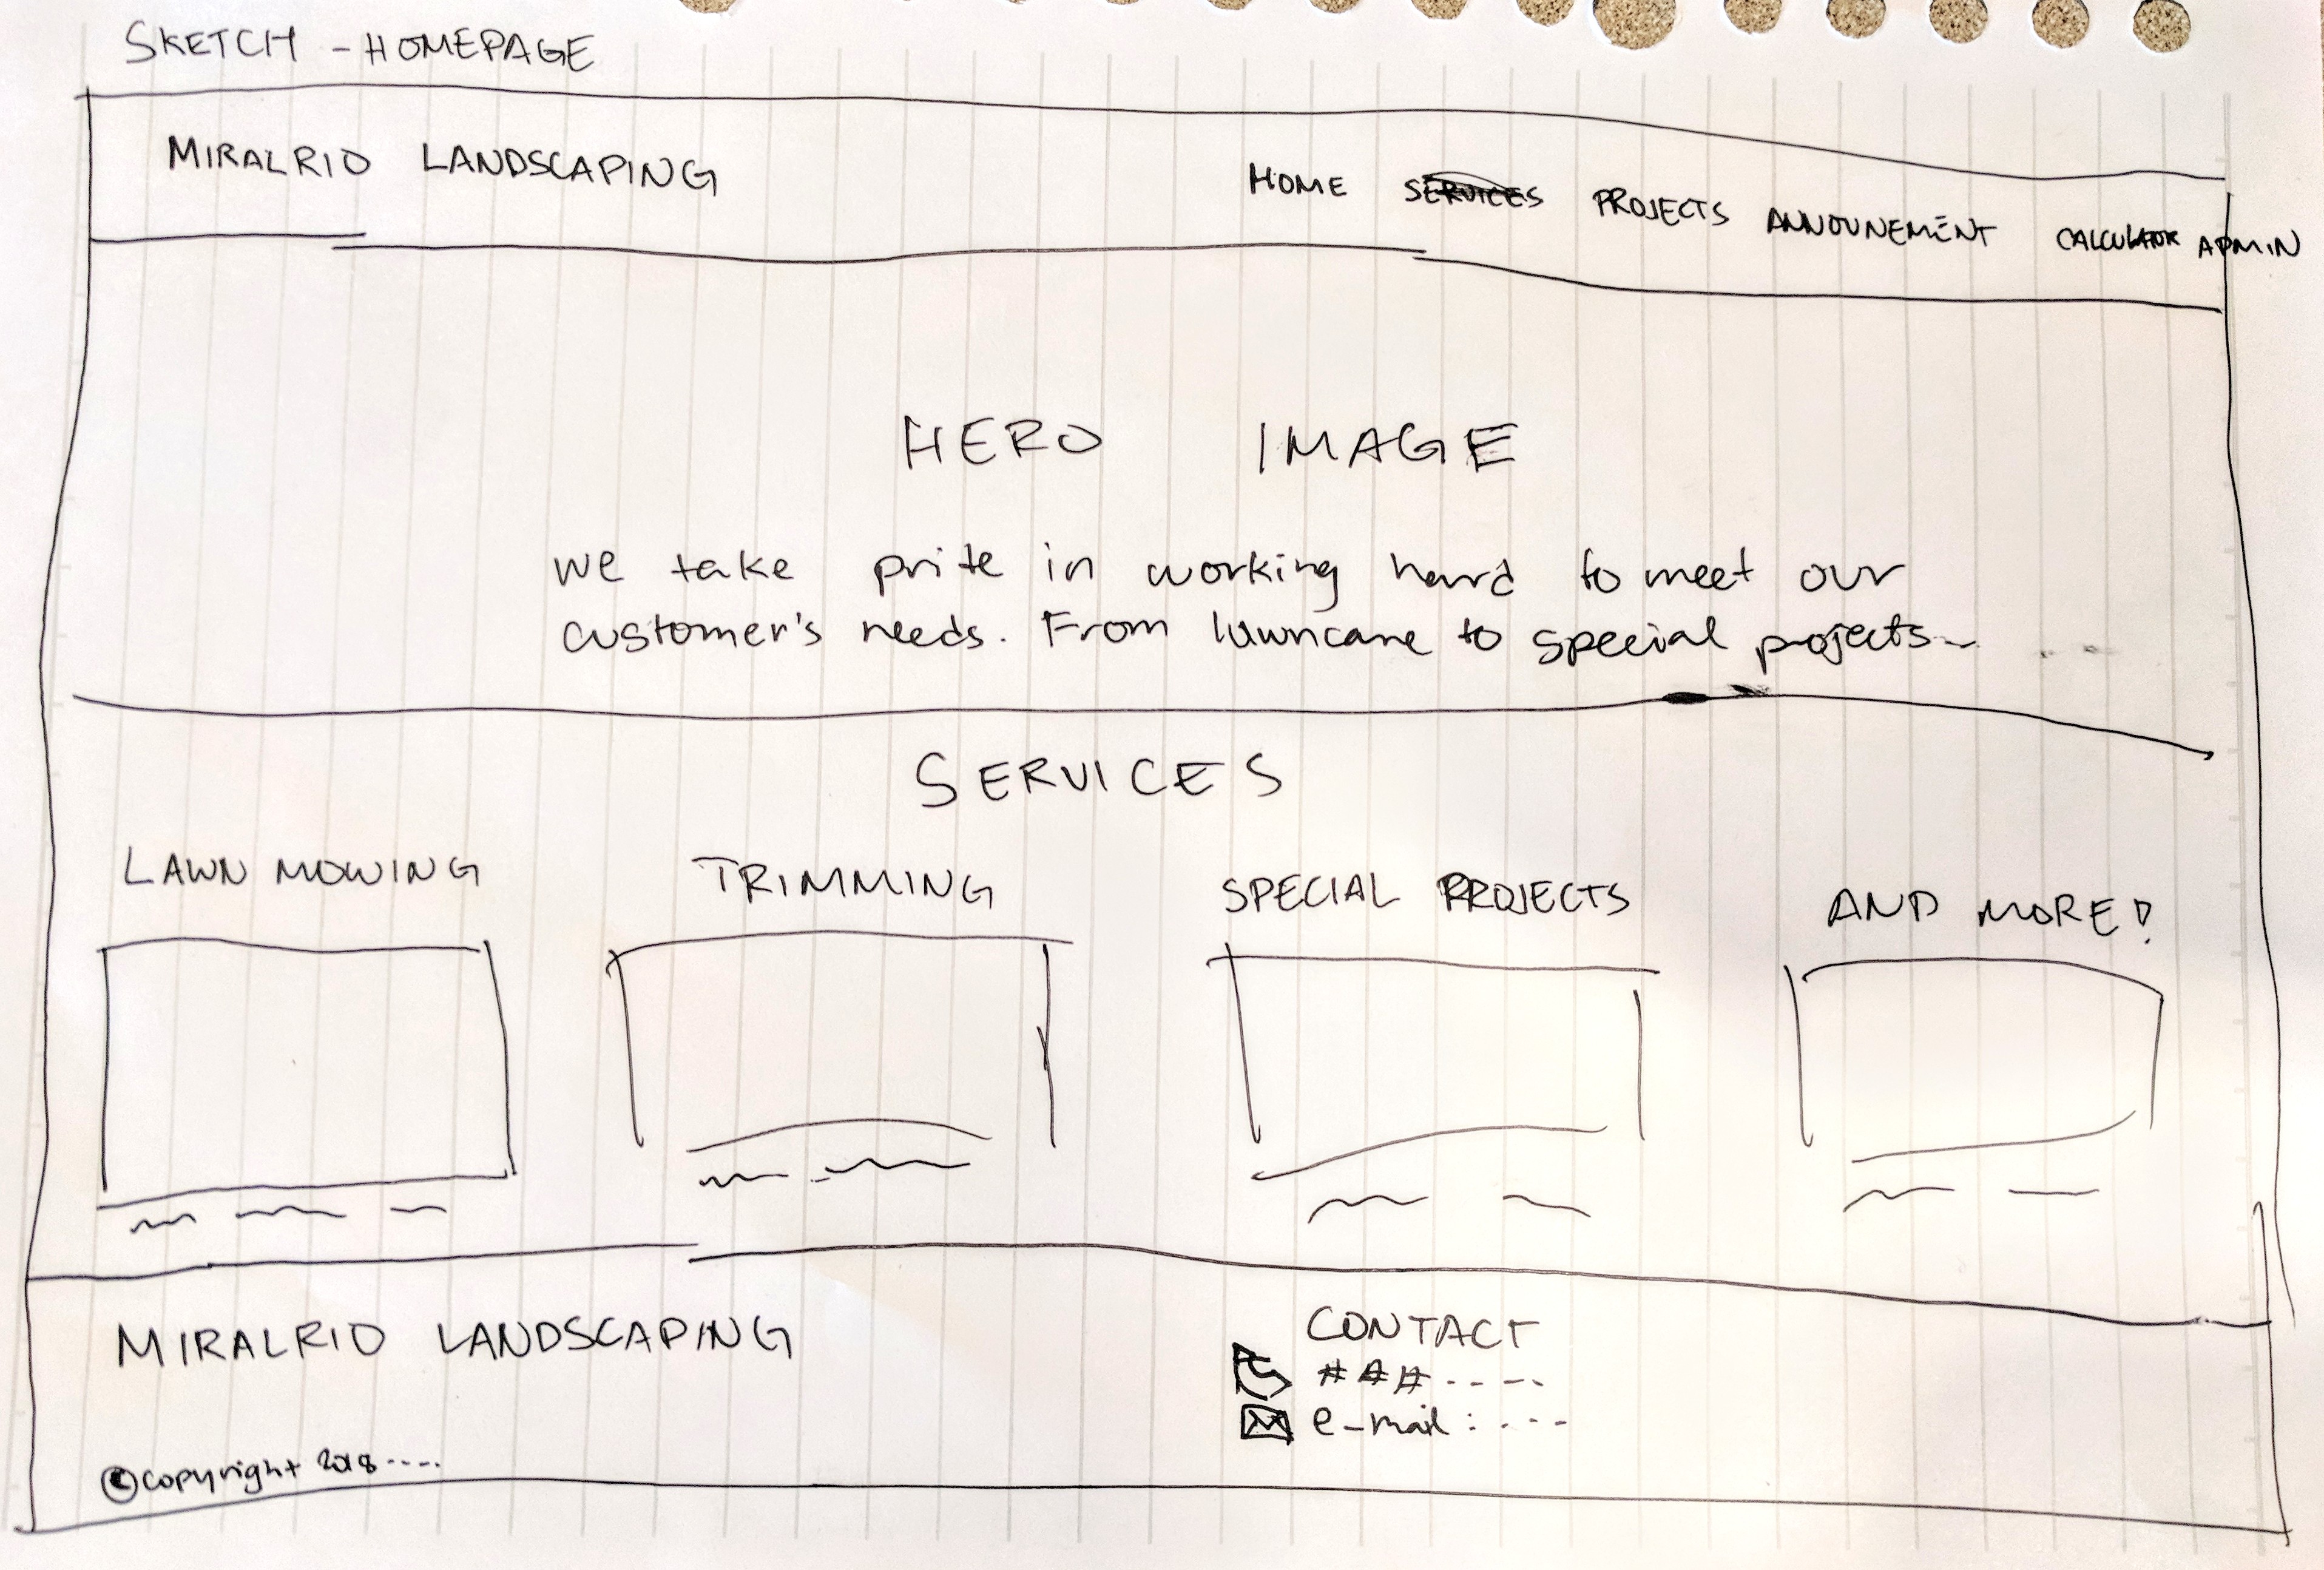 SKETCH - HOMEPAGE
MIRALRIO LANDSCAPING
HOME SERVICES PROJECTS ANNOUNEMENT CALCULATOR ADMIN
HERO IMAGE
we take prite in working hard to meet our
customer's needs. From lawncare to special projects...
SERVICES
LAWN MOWING TRIMMING SPECIAL PROJECTS AND MORE!
MIRALRIO LANDSCAPING
CONTACT
###----
e-mail: ---
©copyright 2018----